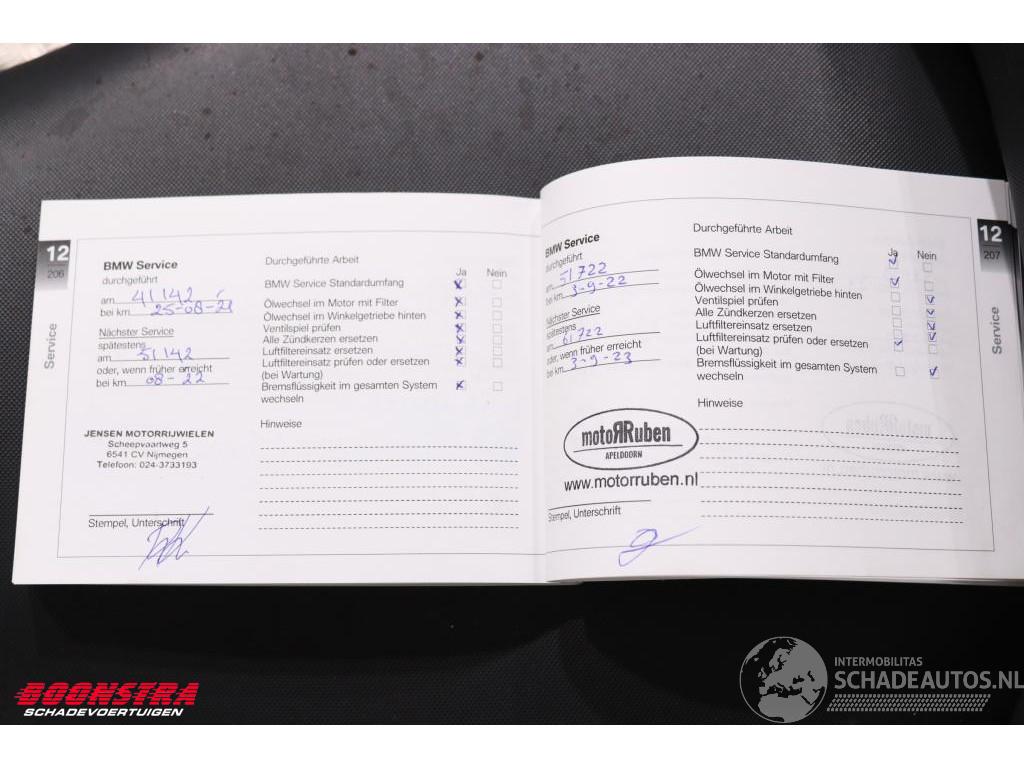 12
206
Service
BMW Service
durchgeführt
am 41142
bei km 25-08-21
Nächster Service
spätestens
am 51142
oder, wenn früher erreicht
bei km 08-22
JENSEN MOTORRIJWIELEN
Scheepvaartweg 5
6541 CV Nijmegen
Telefoon: 024-3733193
Stempel, Unterschrift
Durchgeführte Arbeit
Ja Nein
BMW Service Standardumfang
Ölwechsel im Motor mit Filter
Ölwechsel im Winkelgetriebe hinten
Ventilspiel prüfen
Alle Zündkerzen ersetzen
Luftfiltereinsatz ersetzen
Luftfiltereinsatz prüfen oder ersetzen
(bei Wartung)
Bremsflüssigkeit im gesamten System
wechseln
Hinweise
BMW Service
durchgeführt
am 51722
bei km 3-9-22
Nächster Service
spätestens
am 61722
oder, wenn früher erreicht
bei km 3-9-23
motoRRuben
APELDOORN
www.motorruben.nl
Stempel, Unterschrift
Durchgeführte Arbeit
Ja Nein
BMW Service Standardumfang
Ölwechsel im Motor mit Filter
Ölwechsel im Winkelgetriebe hinten
Ventilspiel prüfen
Alle Zündkerzen ersetzen
Luftfiltereinsatz ersetzen
Luftfiltereinsatz prüfen oder ersetzen
(bei Wartung)
Bremsflüssigkeit im gesamten System
wechseln
Hinweise
12
207
Service
BOONSTRA
SCHADEVOERTUIGEN
INTERMOBILITAS
SCHADEAUTOS.NL